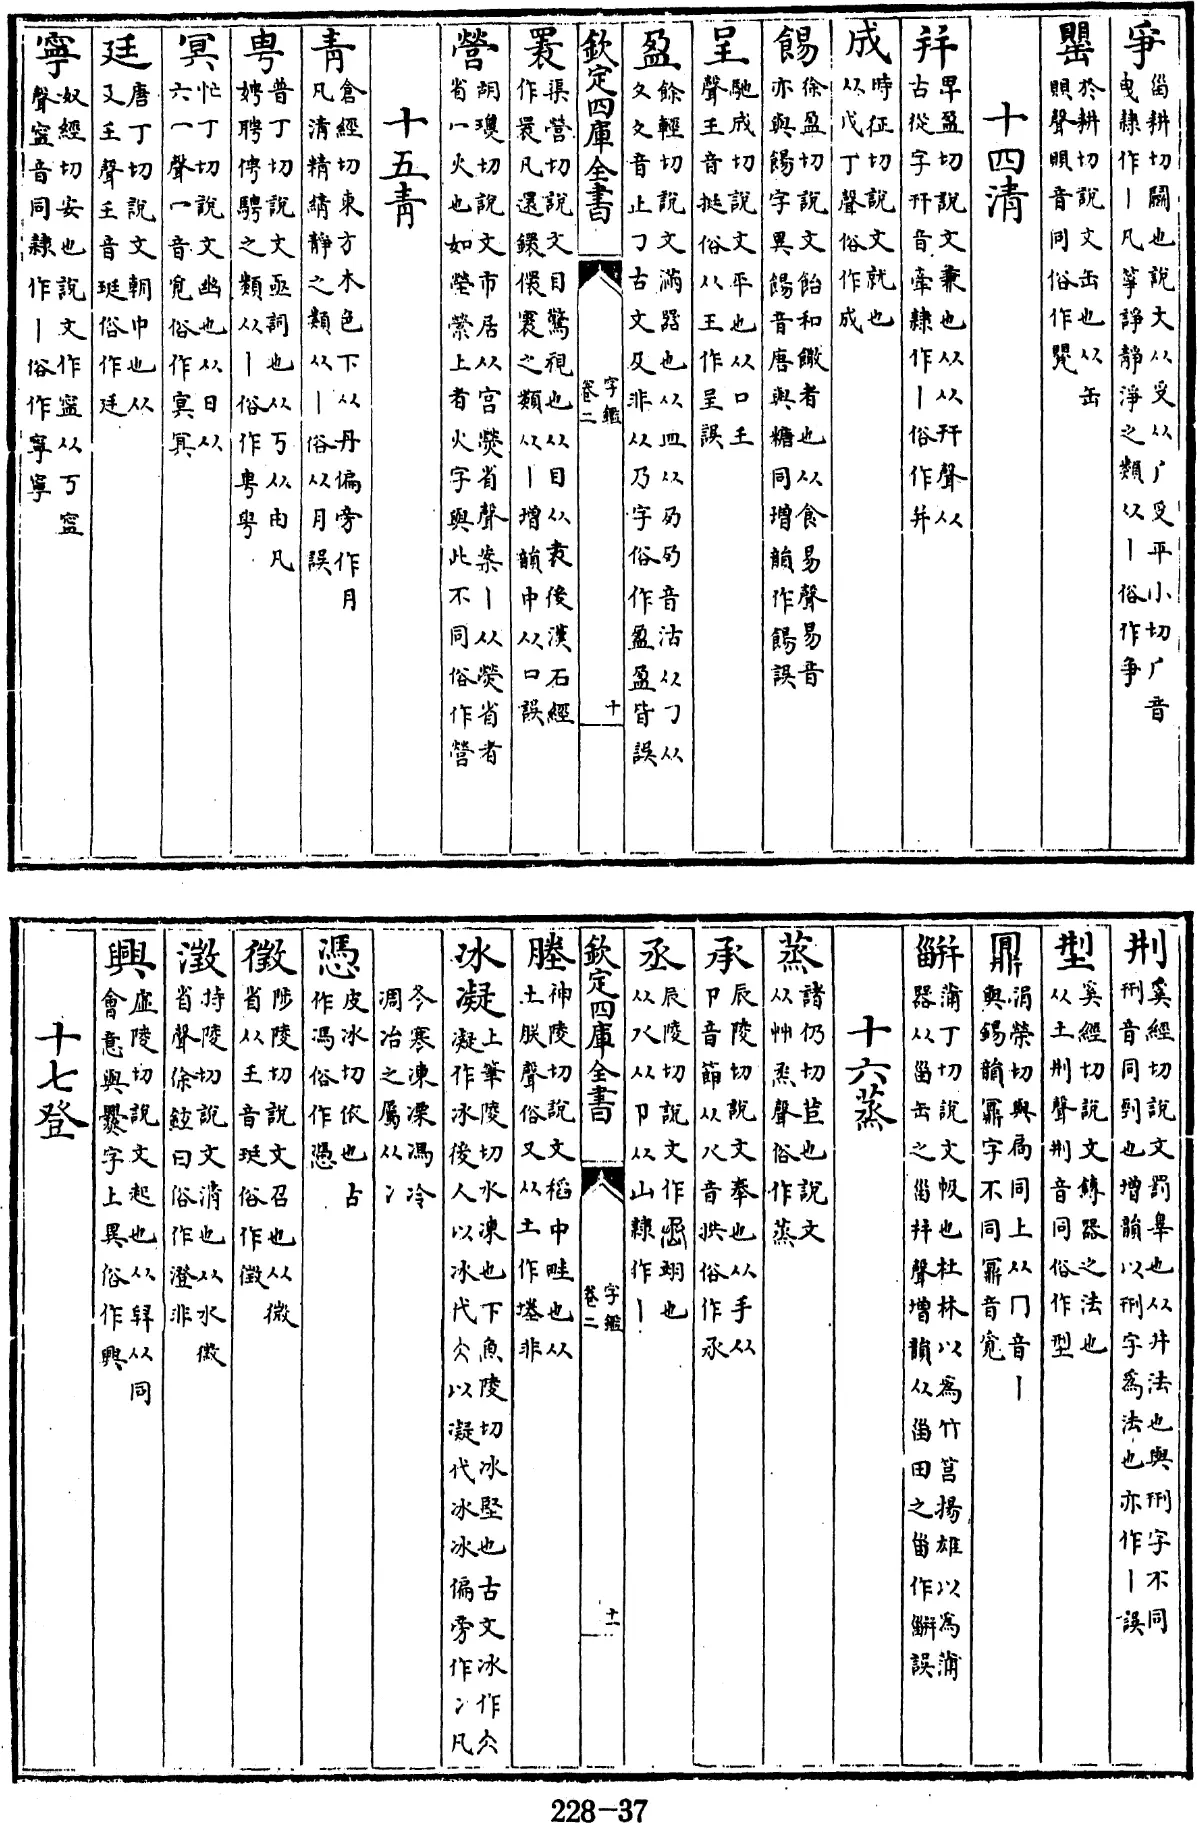 爭 甾耕切鬬也說文从𠬪从厂𠬪平小切厂音曳隸作丨凡箏諍靜淨之類从丨俗作争
罌 於耕切說文缶也从缶賏聲賏音同俗作甖
十四清
幷 早盈切說文兼也从从幵聲从古從字幵音牽隸作丨俗作并
成 時征切說文就也从戊丁聲俗作成
餳 徐盈切說文飴和饊者也从食昜聲昜音亦與餳字異餳音唐與糖同增韻作餳誤
呈 馳成切說文平也从口𡈼聲𡈼音挺俗从王作呈誤
盈 餘輕切說文滿器也从皿从夃夃音沽从㇆从夂夂音止㇆古文及非从乃字俗作盈盈皆誤
欽定四庫全書 字鑑 卷二 十
瞏 渠營切說文目驚視也从目从袁後漢石經作睘凡還鐶儇寰之類从丨增韻中从口誤
營 詗瓊切說文市居从宮熒省聲案丨从熒省者省一火也如塋縈上者火字與此不同俗作營
十五青
青 倉經切東方木色下从丹偏旁作月凡清精綪靜之類从丨俗从月誤
甹 普丁切說文亟詞也从丂从由凡娉聘俜騁之類从丨俗作甹甹
冥 忙丁切說文幽也从日从六冖聲冖音覓俗作𡨕冥
廷 唐丁切說文朝中也从廴𡈼聲𡈼音珽俗作廷
寧 奴經切安也說文作寍从丂寍聲寍音同隸作丨俗作寕寧
荆 奚經切說文罰辠也从井法也與刑字不同刑音同剄也增韻以刑字爲法也亦作丨誤
型 奚經切說文鑄器之法也从土㓝聲㓝音同俗作型
鼏 涓榮切與扃同上从冂音丨與錫韻鼏字不同鼏音覓
𤮌 蒲丁切說文㽀也杜林以爲竹筥揚雄以爲蒲器从甾缶之甾幷聲增韻从甾田之甾作𤮌誤
十六蒸
蒸 諸仍切苣也說文从艸烝聲俗作蒸
承 辰陵切說文奉也从手从卪音節从𠬞音拱俗作承
丞 辰陵切說文作𠄓翊也从𠬞从卪从山隸作丨
欽定四庫全書 字鑑 卷二 十一
塍 神陵切說文稻中畦也从土朕聲俗又从土作塍非
冰凝 上筆陵切水凍也下魚陵切冰堅也古文冰作仌凝作冰後人以冰代仌以凝代冰冰偏旁作冫凡
冬寒凍凓馮冷凋冶之屬从冫
憑 皮冰切依也古作馮俗作憑
徵 陟陵切說文召也从微省从𡈼音珽俗作徵
澂 持陵切說文清也从水徵省聲徐鉉曰俗作澄非
興 虛陵切說文起也从舁从同會意與爨字上異俗作興
十七登
228-37